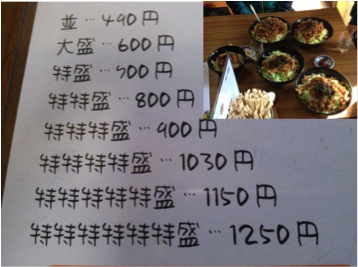 並…490円
大盛…600円
特盛…700円
特特盛…800円
特特特盛…900円
特特特特盛…1030円
特特特特特盛…1150円
特特特特特特盛…1250円